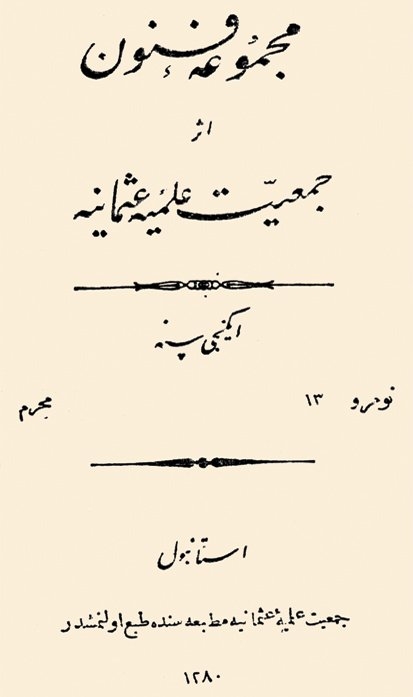 مجموعۀ فنون
اثر
جمعیّت علمیۀ عثمانیه
ایکنجی سنه
نومرو ١٣ محرم
استانبول
جمعیت علمیۀ عثمانیه مطبعه سنده طبع اولنمشدر
١٢٨٠